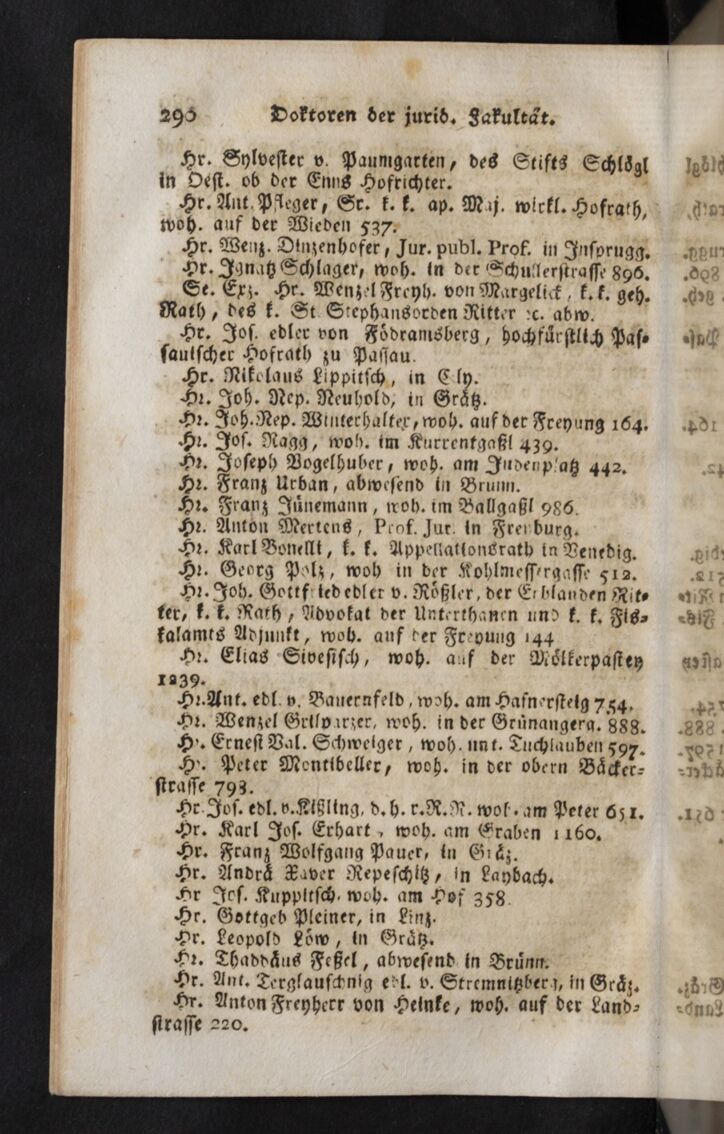 296 Doktoren der jurid. Fakultät.
Hr. Sylvester v. Paumgarten, des Stifts Schlögl
in Oest. ob der Enns Hofrichter.
Hr. Ant. Pfleger, Sr. k. k. ap. Maj. wirkl. Hofrath,
woh. auf der Wieden 537.
Hr. Wenz. Dinzenhofer, Jur. publ. Prof. in Insprugg.
Hr. Ignatz Schlager, woh. in der Schullerstrasse 896.
Se. Exz. Hr. Wenzel Freyh. von Margelick, k. k. geh.
Rath, des k. St. Stephansorden Ritter ꝛc. abw.
Hr. Jos. edler von Födramsberg, hochfürstlich Pas-
sauischer Hofrath zu Passau.
Hr. Nikolaus Lippitsch, in Cily.
Hr. Joh. Nep. Neuhold, in Grätz.
Hr. Joh. Nep. Winterhalter, woh. auf der Freyung 164.
Hr. Jos. Ragg, woh. im Kurrentgaßl 439.
Hr. Joseph Vogelhuber, woh. am Judenplatz 442.
Hr. Franz Urban, abwesend in Brunn.
Hr. Franz Jünemann, woh. im Ballgaßl 986.
Hr. Anton Mertens, Prof. Jur. in Freyburg.
Hr. Karl Bonelli, k. k. Appellationsrath in Venedig.
Hr. Georg Polz, woh in der Kohlmessergasse 512.
Hr. Joh. Gottfried edler v. Rößler, der Erblanden Rit-
ter, k. k. Rath, Advokat der Unterthanen und k. k. Fis-
kalamts Adjunkt, woh. auf der Freyung 144
Hr. Elias Sivesisch, woh. auf der Mölkerpastey
1239.
Hr. Ant. edl. v. Bauernfeld, woh. am Hafnersteig 754.
Hr. Wenzel Grilparzer, woh. in der Grünangerg. 888.
Hr. Ernest Val. Schweiger, woh. unt. Tuchlauben 597.
Hr. Peter Montibeller, woh. in der obern Bäcker-
strasse 793.
Hr. Jos. edl. v. Kißling, d. h. r. R. R. woh. am Peter 651.
Hr. Karl Jos. Erhart, woh. am Graben 1160.
Hr. Franz Wolfgang Pauer, in Gräz.
Hr. Andrä Xaver Repeschitz, in Laybach.
Hr Jos. Kuppitsch, woh. am Hof 358.
Hr. Gottgeb Pleiner, in Linz.
Hr. Leopold Löw, in Grätz.
Hr. Thaddäus Feßel, abwesend in Brünn.
Hr. Ant. Terglauschnig edl. v. Stremnitzberg, in Gräz.
Hr. Anton Freyherr von Heinke, woh. auf der Land-
strasse 220.